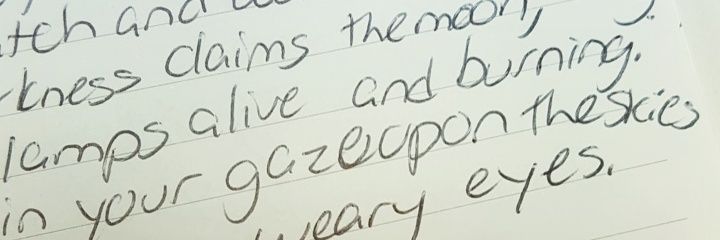 tch and
kness claims the moon,
lamps alive and burning.
in your gaze upon the skies
weary eyes.